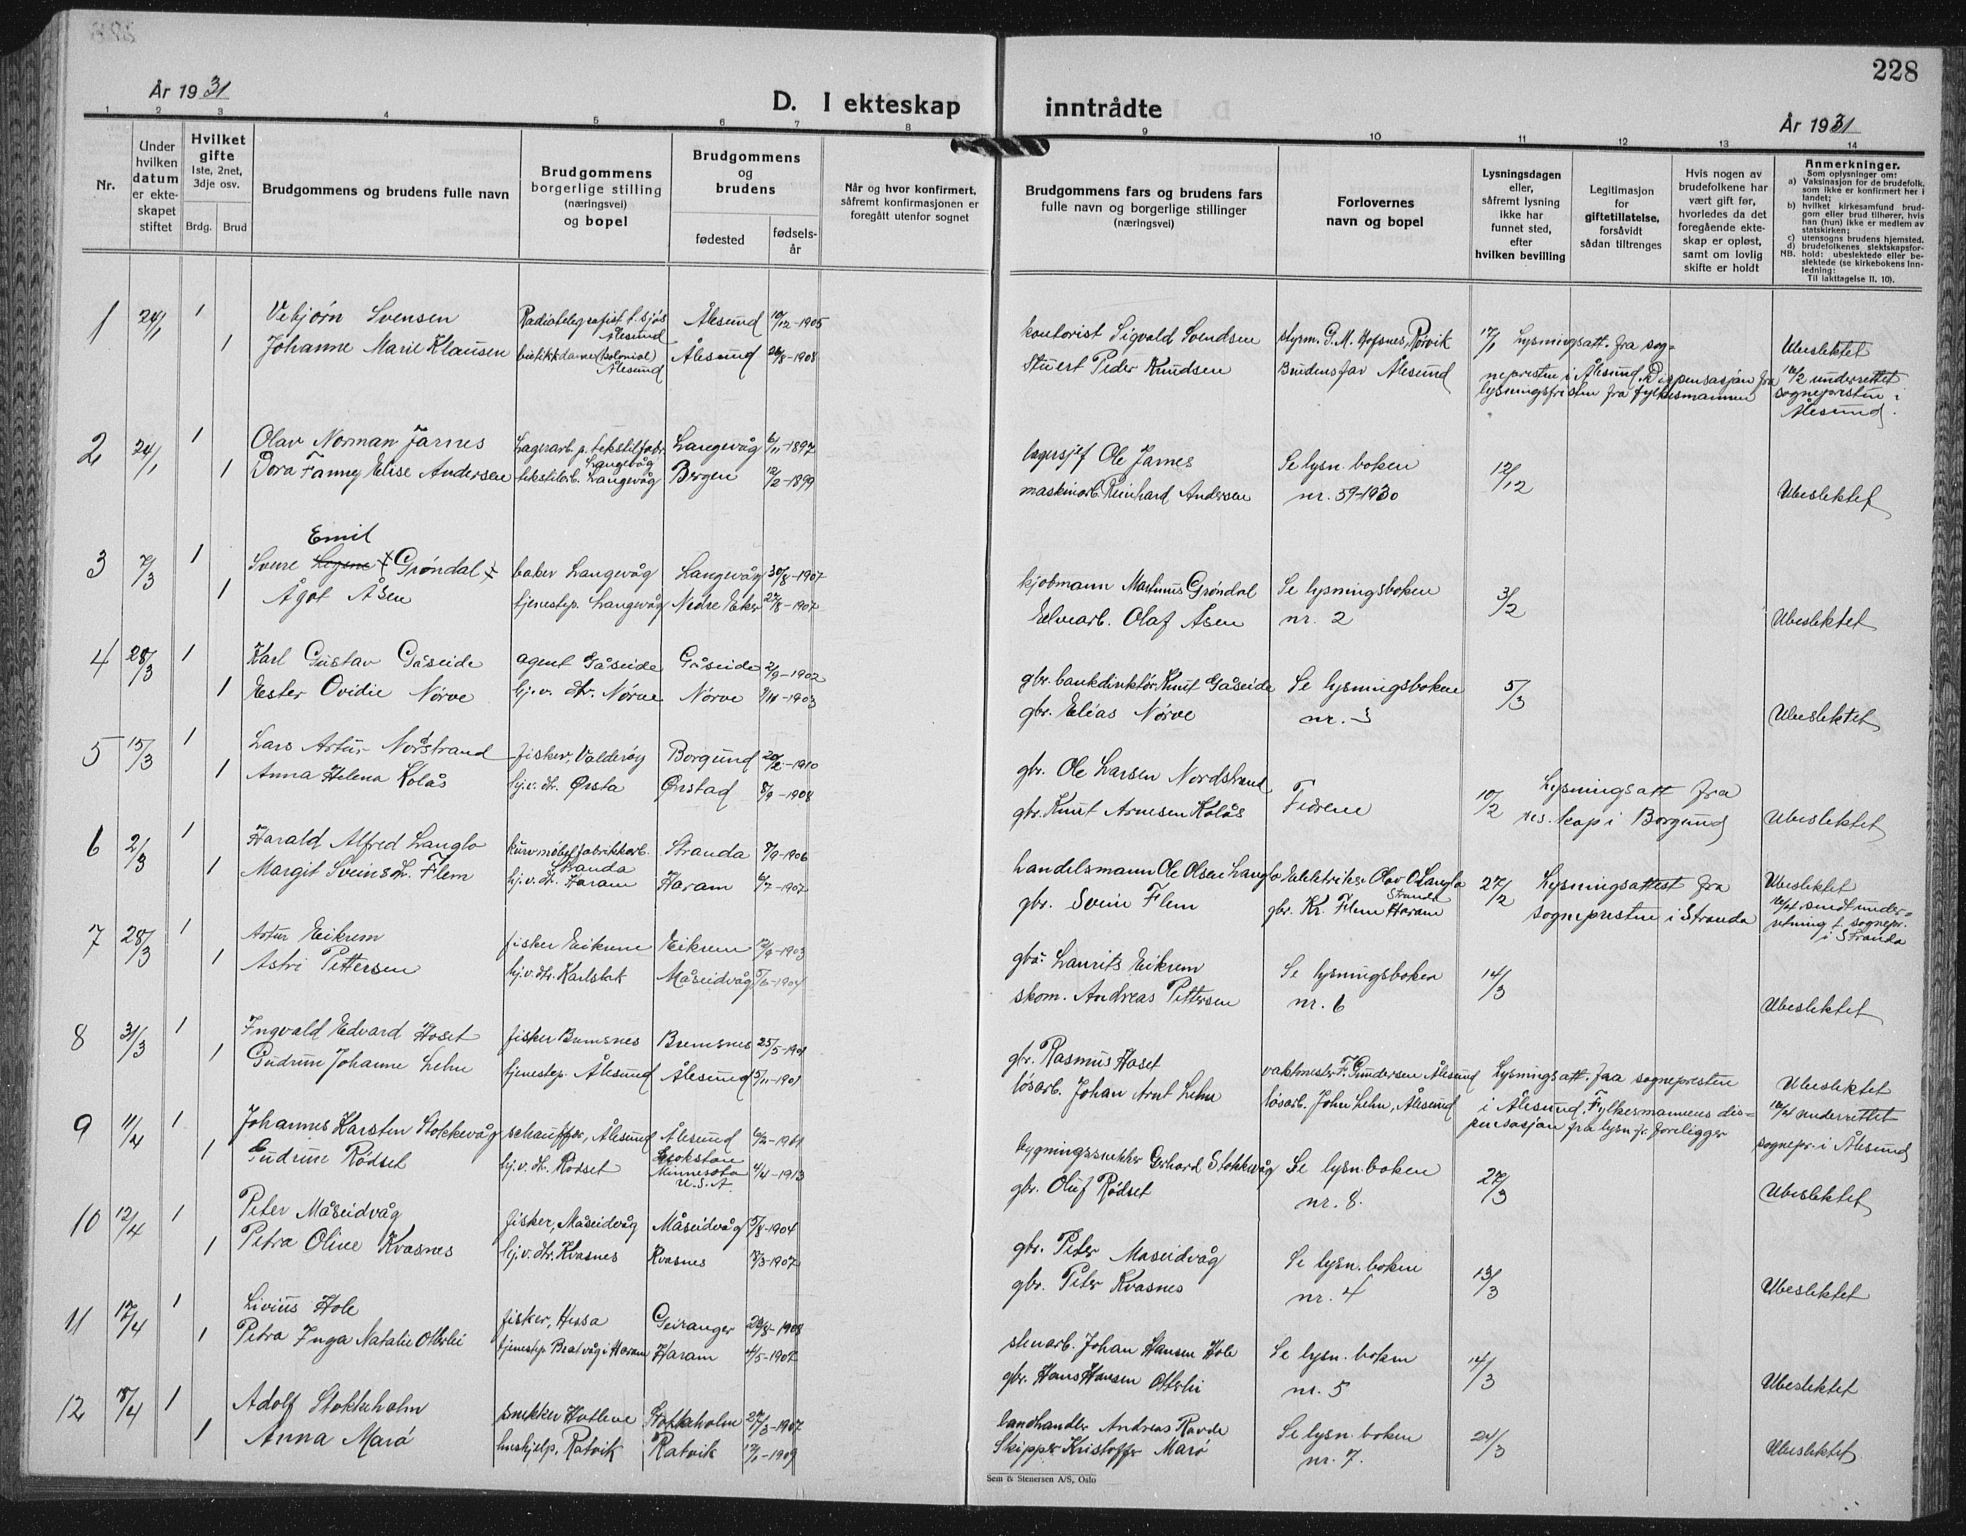 År 1931
D. I ekteskap inntrådte
228
År 1931
1 2 3 4 5 6 7 8 9 10 11 12 13 14
Nr.
Under hvilken datum er ekteskapet stiftet
Hvilket gifte
1ste, 2net, 3dje osv.
Brdg. Brud
Brudgommens og brudens fulle navn
Brudgommens borgerlige stilling (næringsvei) og bopel
Brudgommens og brudens
fødested
fødselsår
Når og hvor konfirmert, såfremt konfirmasjonen er foregått utenfor sognet
Brudgommens fars og brudens fars fulle navn og borgerlige stillinger (næringsvei)
Forlovernes navn og bopel
Lysningsdagen eller, såfremt lysning ikke har funnet sted, efter hvilken bevilling
Legitimasjon for giftetillatelse, forsåvidt sådan tiltrenges
Hvis nogen av brudefolkene har vært gift før, hvorledes da det foregående ekteskap er opløst, samt om lovlig skifte er holdt
Anmerkninger.
Som oplysninger om:
a) Vaksinasjon for de brudefolk, som ikke er konfirmert her i landet;
b) hvilket kirkesamfund brudgom eller brud tilhører, hvis han (hun) ikke er medlem av statskirken;
c) utensogns brudens hjemsted.
d) brudefolkenes slektskapsforhold: ubeslektede eller beslektede (se kirkebokens innledning:
NB.
Til iakttagelse II. 10).
1 24/1 1 Vebjørn Svensen Radiotelegrafist t. sjøs Ålesund Ålesund 10/12-1905 kontorist Sigvald Svendsen styrm. G. M. Hofsnes, Rørvik 17/1 Lysningsatt. fra sog-
1 Johanne Marie Klausen butikkdame (kolonial) Ålesund Ålesund 26/8-1908 Stuert Peder Knudsen Brudens far Ålesund nepresten i Ålesund. Dispensasjon fra lysningsfristen fra fylkesmannen Ubeslektet
12/2 underrettet sognepresten i Ålesund.
2 24/1 1 Olav Norman Jarnes Lagerarb. p. tekstilfabr. Langevåg Langevåg 6/11-1897 lagersjef Ole Jarnes Se lysn. boken 12/12
1 Dora Fanny Elise Andersen tekstilarb. Langevåg Bergen 12/2-1899 maskinarb. Reinhard Andersen nr. 59-1930 Ubeslektet
Emil
3 7/3 1 Sverre Grøndal baker Langevåg Langevåg 30/8-1907 kjøbmann Martinus Grøndal Se lysningsboken 3/2
1 Ågot Åsen tjenestep. Langevåg Nedre Eker 27/8-1907 Elvearb. Olaf Åsen nr. 2 Ubeslektet
4 28/3 1 Karl Gustav Gåseide agent Gåseide Gåseide 2/9-1902 gbr. bankdirektør Knut Gåseide Se lysningsboken 5/3
1 Ester Ovidie Nørve hj. v. dtr. Nørve Nørve -1903 gbr. Elias Nørve nr. 3 Ubeslektet
5 15/3 1 Lars Artur Nordstrand fisker, Valderøy Borgund 20/2-1910 gbr. Ole Larsen Nordstrand Fedrene 10/2 Lysningsatt fra
1 Anna Helena Kolås hj. v. dtr. Ørsta Ørstad 8/9-1908 gbr. Knut Arnesen Kolås res. kap i Borgund Ubeslektet
6 2/3 1 Harald Alfred Langlo kurvmøbelfabrikkarb. Stranda Stranda 9/9-1906 handelsmann Ole Olsen Langlo Elektriker Olav O. Langlo Stranda 27/2 Lysningsattest fra Ubeslektet
1 Margit Sveinsd. Flem hj. v. dtr. Haram Haram 6/7-1907 gbr. Svein Flem gbr. Kr. Flem Haram sognepresten i Stranda sendt underretning t. sognepr. i Stranda
7 28/3 1 Artur Eikrem fisker Eikrem Eikrem 12/9-1903 gbr. Laurits Eikrem Se lysningsboken 14/3
1 Astri Pettersen hj. v. dtr. Karlstrk Måseidvåg 5/6-1904 skom. Andreas Pettersen nr. 6 Ubeslektet
8 31/3 1 Ingvald Edvard Hoset fisker Bremsnes Bremsnes 25/5-1901 gbr. Rasmus Hoset vaktmester F. Gundersen Ålesund Lysningsatt. fra sognepresten Ubeslektet
1 Gudrun Johanne Lehn tjenestep. Ålesund Ålesund 5/11-1901 løsarb. Johan Arnt Lehn løsarb. John Lehn, Ålesund i Ålesund, Fylkesmannens dispensasjon fra lysn. fr. foreligger underrettet sognepr. i Ålesund
9 11/4 1 Johannes Karsten Stokkevåg schauffør, Ålesund Ålesund -1901 bygningssnekker Gerhard Stokkevåg Se lysn. boken 27/3
1 Gudrun Rødset hj. v. dtr. Rødset Crokston Minnesota U.S.A. 4/4-1913 gbr. Oluf Rødset nr. 8. Ubeslektet
10 12/4 1 Peter Måseidvåg fisker, Måseidvåg Måseidvåg 5/8-1904 gbr. Peter Måseidvåg Se lysn. boken 13/3
1 Petra Oline Kvasnes hj. v. dtr. Kvasnes Kvasnes 7/3-1907 gbr. Peter Kvasnes nr. 4 Ubeslektet
11 17/4 1 Livius Hole fisker, Hessa Geiranger 28/8-1908 stenarb. Johan Hansen Hole Se lysn. boken 14/3
1 Petra Inga Natalie Otterlei tjenestep. Bratvåg i Haram Haram 4/5-1907 gbr. Hans Hansen Otterlei nr. 5 Ubeslektet
12 18/4 1 Adolf Stokkeholm snekker Stokkeholm 27/3-1907 landhandler Andreas Ravde Se lysn. boken 24/3
1 Anna Marø hushjelp, Ratvik Ratvik 17/1-1909 Skipper Kristoffer Marø nr. 7. Ubeslektet
Sem & Stenersen A/S, Oslo